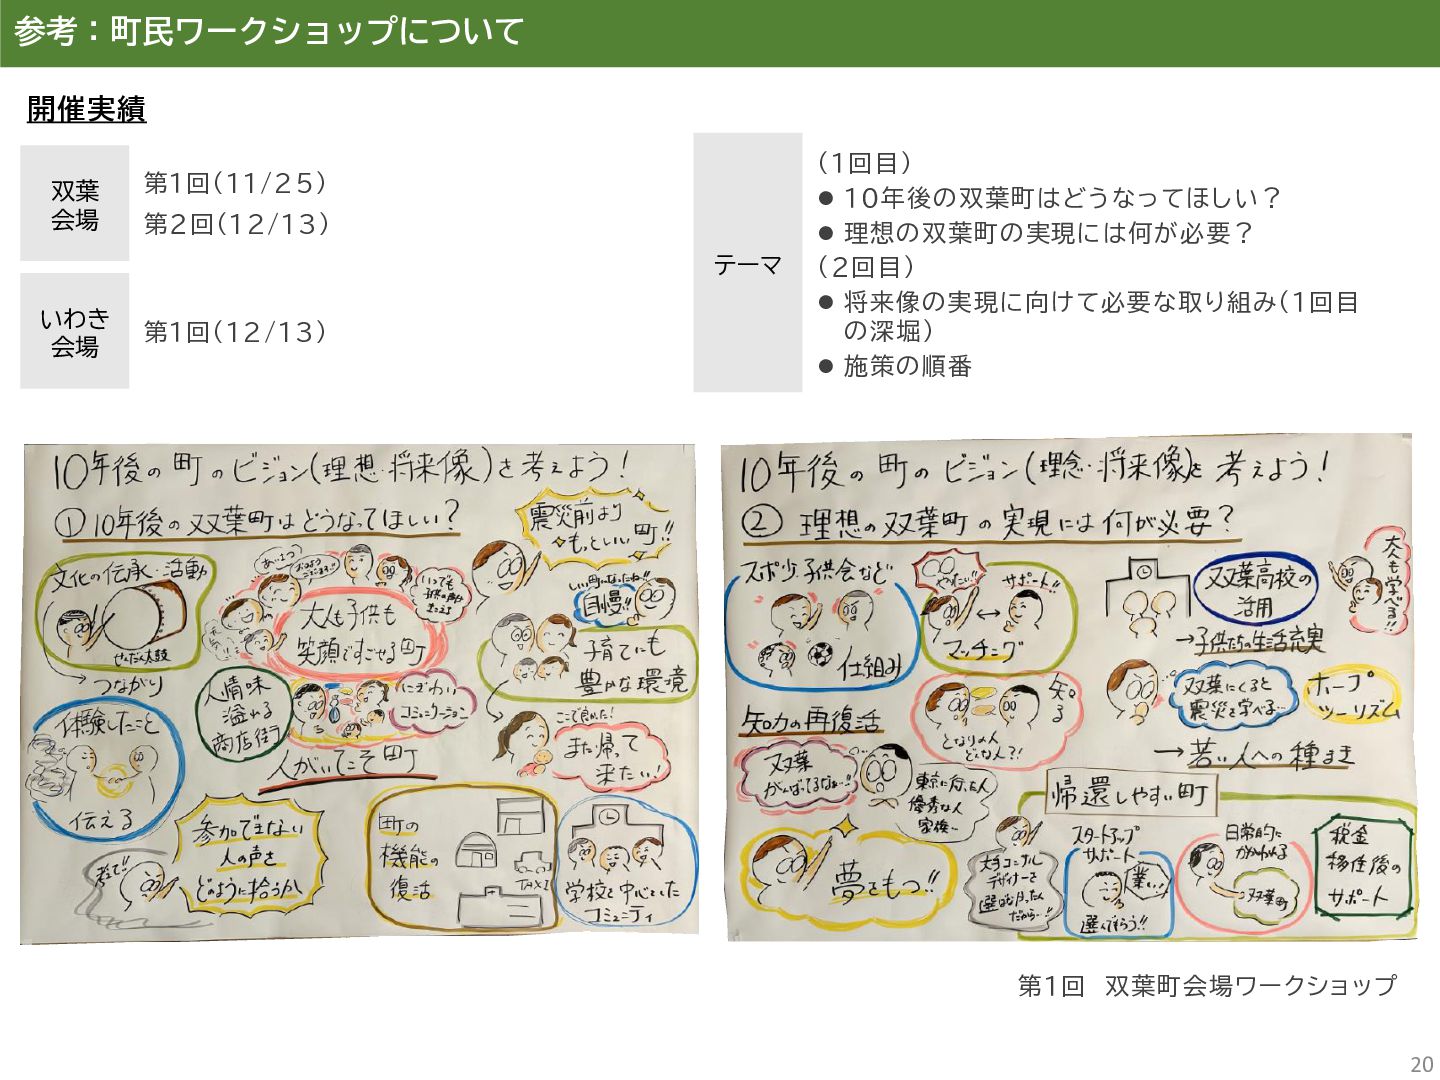 参考：町民ワークショップについて
開催実績
双葉
会場
第1回（11/25）
第2回（12/13）
いわき
会場
第1回（12/13）
テーマ
（1回目）
● 10年後の双葉町はどうなってほしい？
● 理想の双葉町の実現には何が必要？
（2回目）
● 将来像の実現に向けて必要な取り組み（1回目
の深堀）
● 施策の順番
10年後の町のビジョン(理想・将来像)を考えよう!
① 10年後の双葉町はどうなってほしい?
震災前より
もっといい町!!
文化の伝承・活動
せんだん太鼓
つながり
大人も子供も
笑顔ですごせる町
自慢!!
子育てにも
豊かな環境
人情味
溢れる
商店街
にぎわい
コミュニケーション
人がいてこそ町
ここで良かった!
また帰って
来たい!
体験したこと
伝える
参加できない
人の声を
どのように拾うか
町の
機能の
復活
TAXI
学校を中心とした
コミュニティ
10年後の町のビジョン(理念・将来像)を考えよう!
② 理想の双葉町の実現には何が必要?
スポ少・子供会など
仕組み
サポート!!
マッチング
双葉高校の
活用
→子供たちの生活充実
大人も学べる!!
知力の再復活
知る
となりの人
どんな人?!
双葉にくると
震災を学べる…
ホープ
ツーリズム
→若い人への種まき
双葉
がんばってるなぁ…!!
東京に行った人
優秀な人
帰還しやすい町
夢をもつ!!
スタートアップ
サポート
選んでもらう!!
日常的に
かかわれる
双葉町
税金
移住後の
サポート
第1回　双葉町会場ワークショップ
20